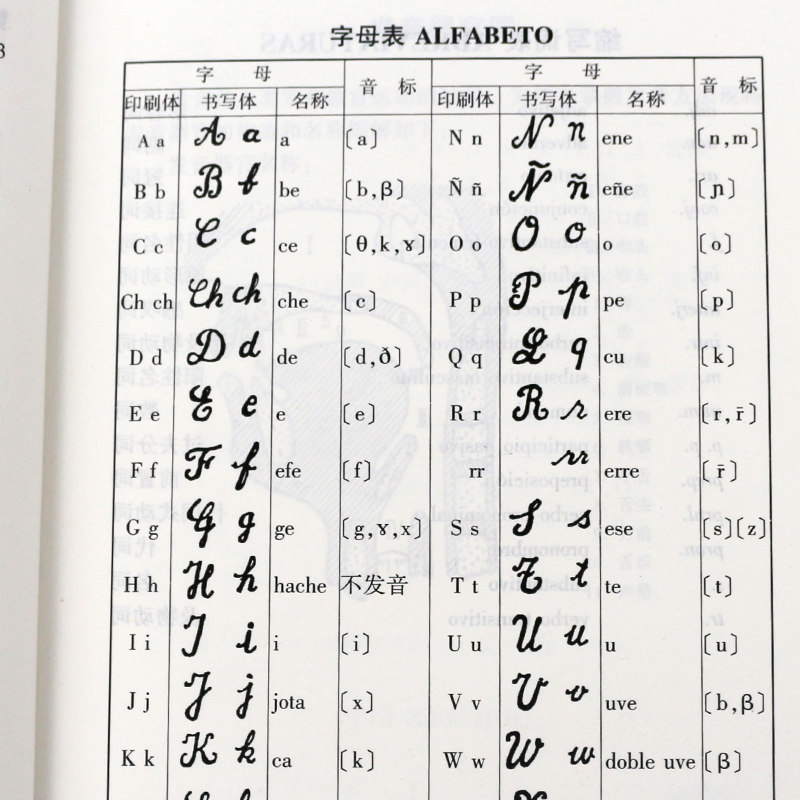 字母表 ALFABETO
字 母 音 标 字 母 音 标
印刷体 书写体 名称 印刷体 书写体 名称
A a A a a 〔a〕 N n N n ene 〔n,m〕
B b B b be 〔b,β〕 Ñ ñ Ñ ñ eñe 〔ɲ〕
C c C c ce 〔θ,k,ɤ〕 O o O o o 〔o〕
Ch ch Ch ch che 〔c〕 P p P p pe 〔p〕
D d D d de 〔d,ð〕 Q q Q q cu 〔k〕
E e E e e 〔e〕 R r R r ere 〔r,r̄〕
F f F f efe 〔f〕 rr rr erre 〔r̄〕
G g G g ge 〔g,ɤ,x〕 S s S s ese 〔s〕〔z〕
H h H h hache 不发音 T t T t te 〔t〕
I i I i i 〔i〕 U u U u u 〔u〕
J j J j jota 〔x〕 V v V v uve 〔b,β〕
K k K k ca 〔k〕 W w W w doble uve 〔β〕